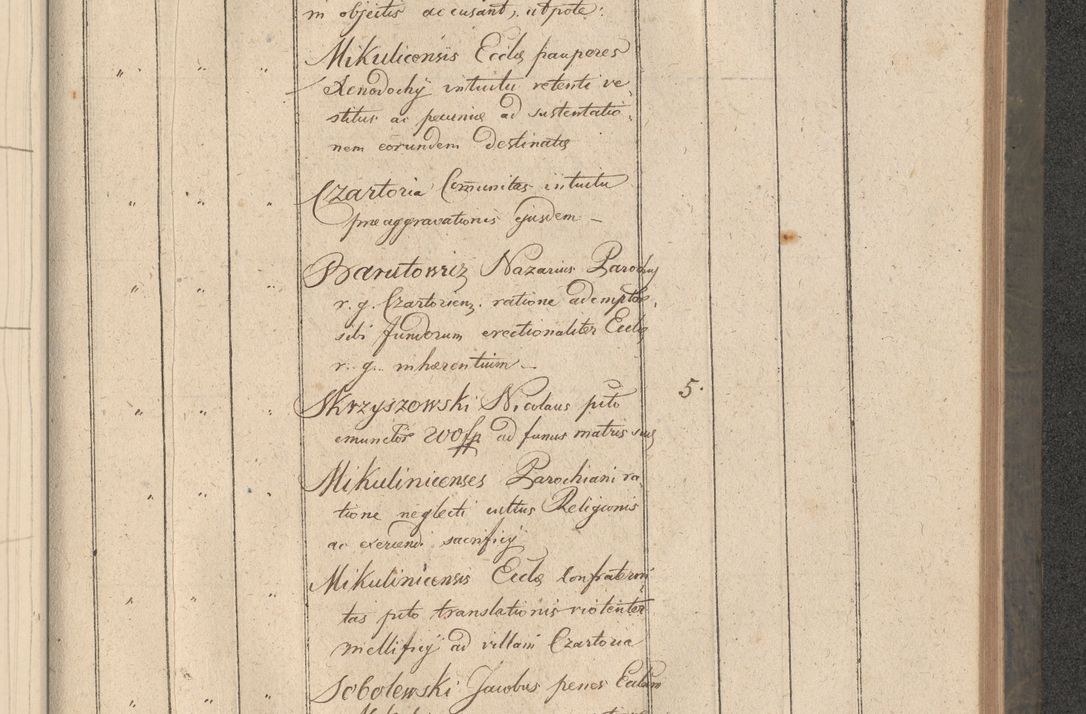 in objectis accusant, utpote:
Mikulicensis Eccłæ pauperes
Xenodochij intuitu retenti ve,
stitus ac pecuniæ ad sustentatio,
nem eorundem destinatis
Czartoria Comunitas intuitu
præaggravationis ejusdem –
Barutowicz Nazarius Parochus
r. g. Czartoriens. ratione ademptor,
sibi fundorum erectionaliter Eccłæ
r. g. inhærentium –
Skrzyszowski Nicolaus pcto 5.
emunctor 200 fp ad funus matris suæ
Mikulinicenses Parochiani ra
tione neglecti cultus Religionis
ac exercendi sacrificij
Mikulinicensis Eccłæ Confraterni
tas pcto translationis violenter
mellificij ad villam Czartoria
Sobolewski Jacobus penes Eccłam